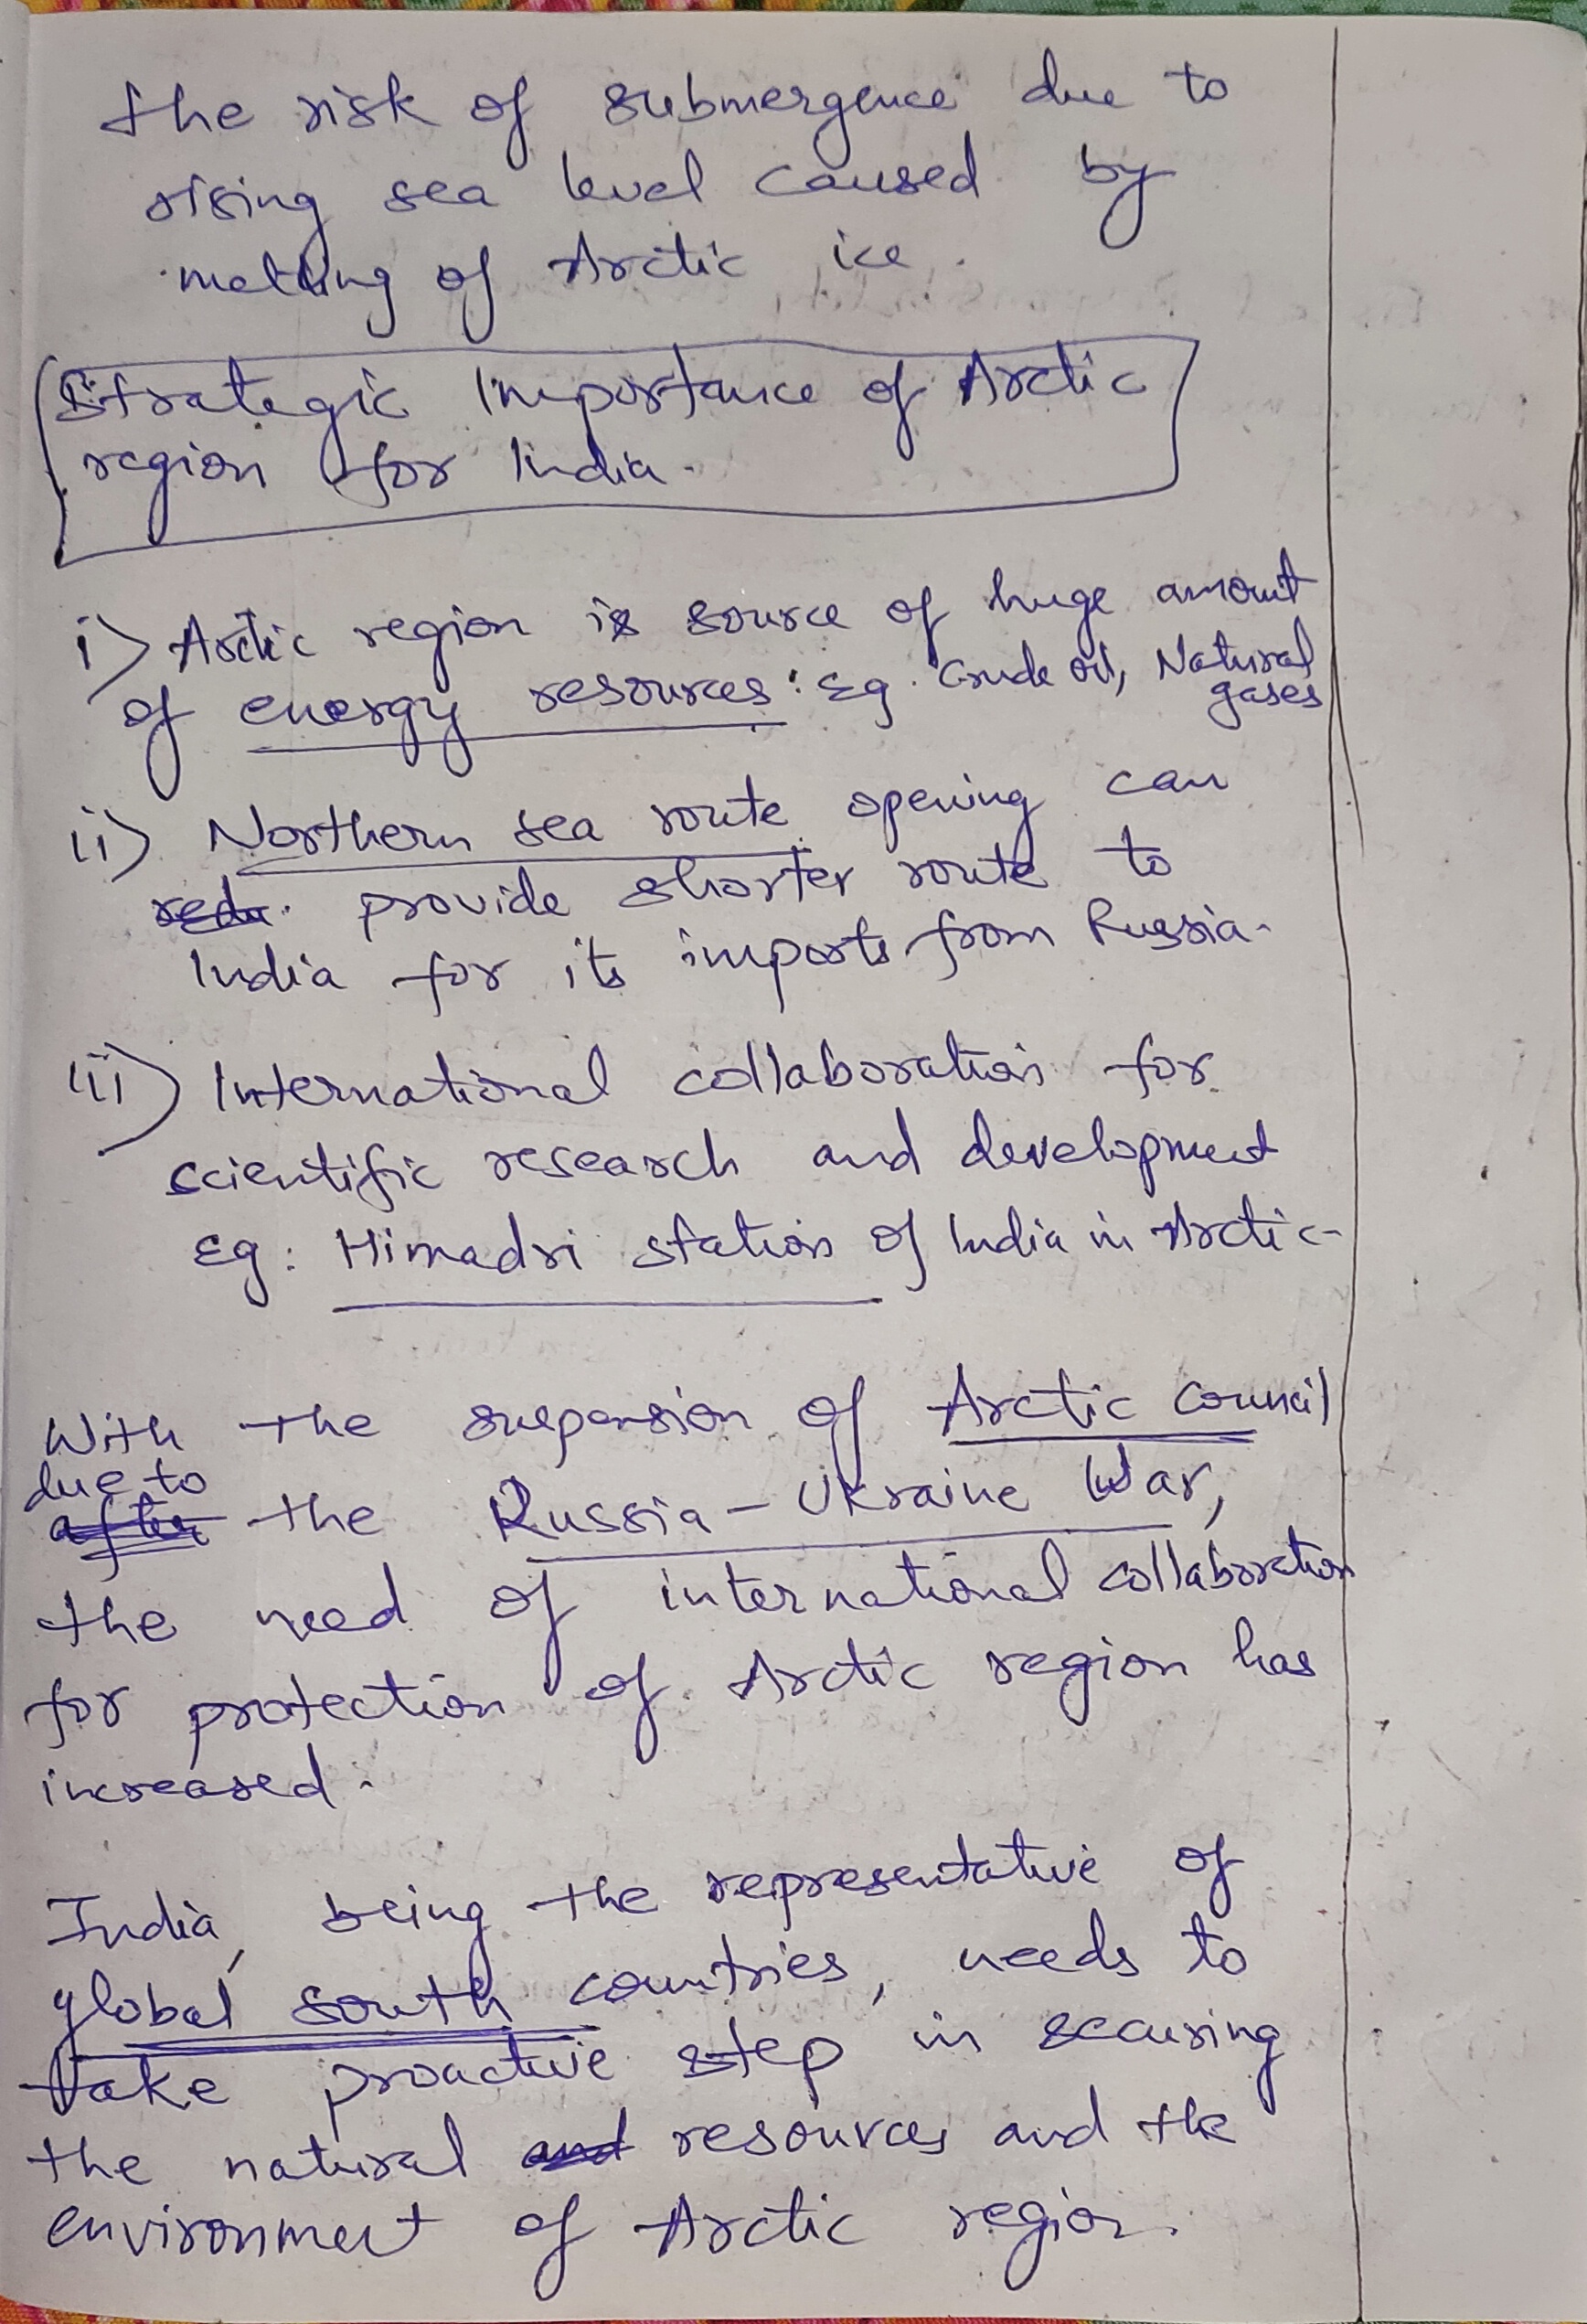 the risk of submergence due to
rising sea level caused by
melting of Arctic ice.
Strategic Importance of Arctic
region for India.
i) Arctic region is source of huge amount
of energy resources: Eg. Crude oil, Natural
gases
ii) Northern sea route opening can
redu. provide shorter route to
India for its imports from Russia.
iii) International collaboration for
scientific research and development
Eg: Himadri station of India in Arctic.
With the suspension of Arctic Council
due to
after the Russia-Ukraine War,
the need of international collaboration
for protection of Arctic region has
increased.
India, being the representative of
global south countries, needs to
take proactive step in securing
the natural and resources and the
environment of Arctic region.